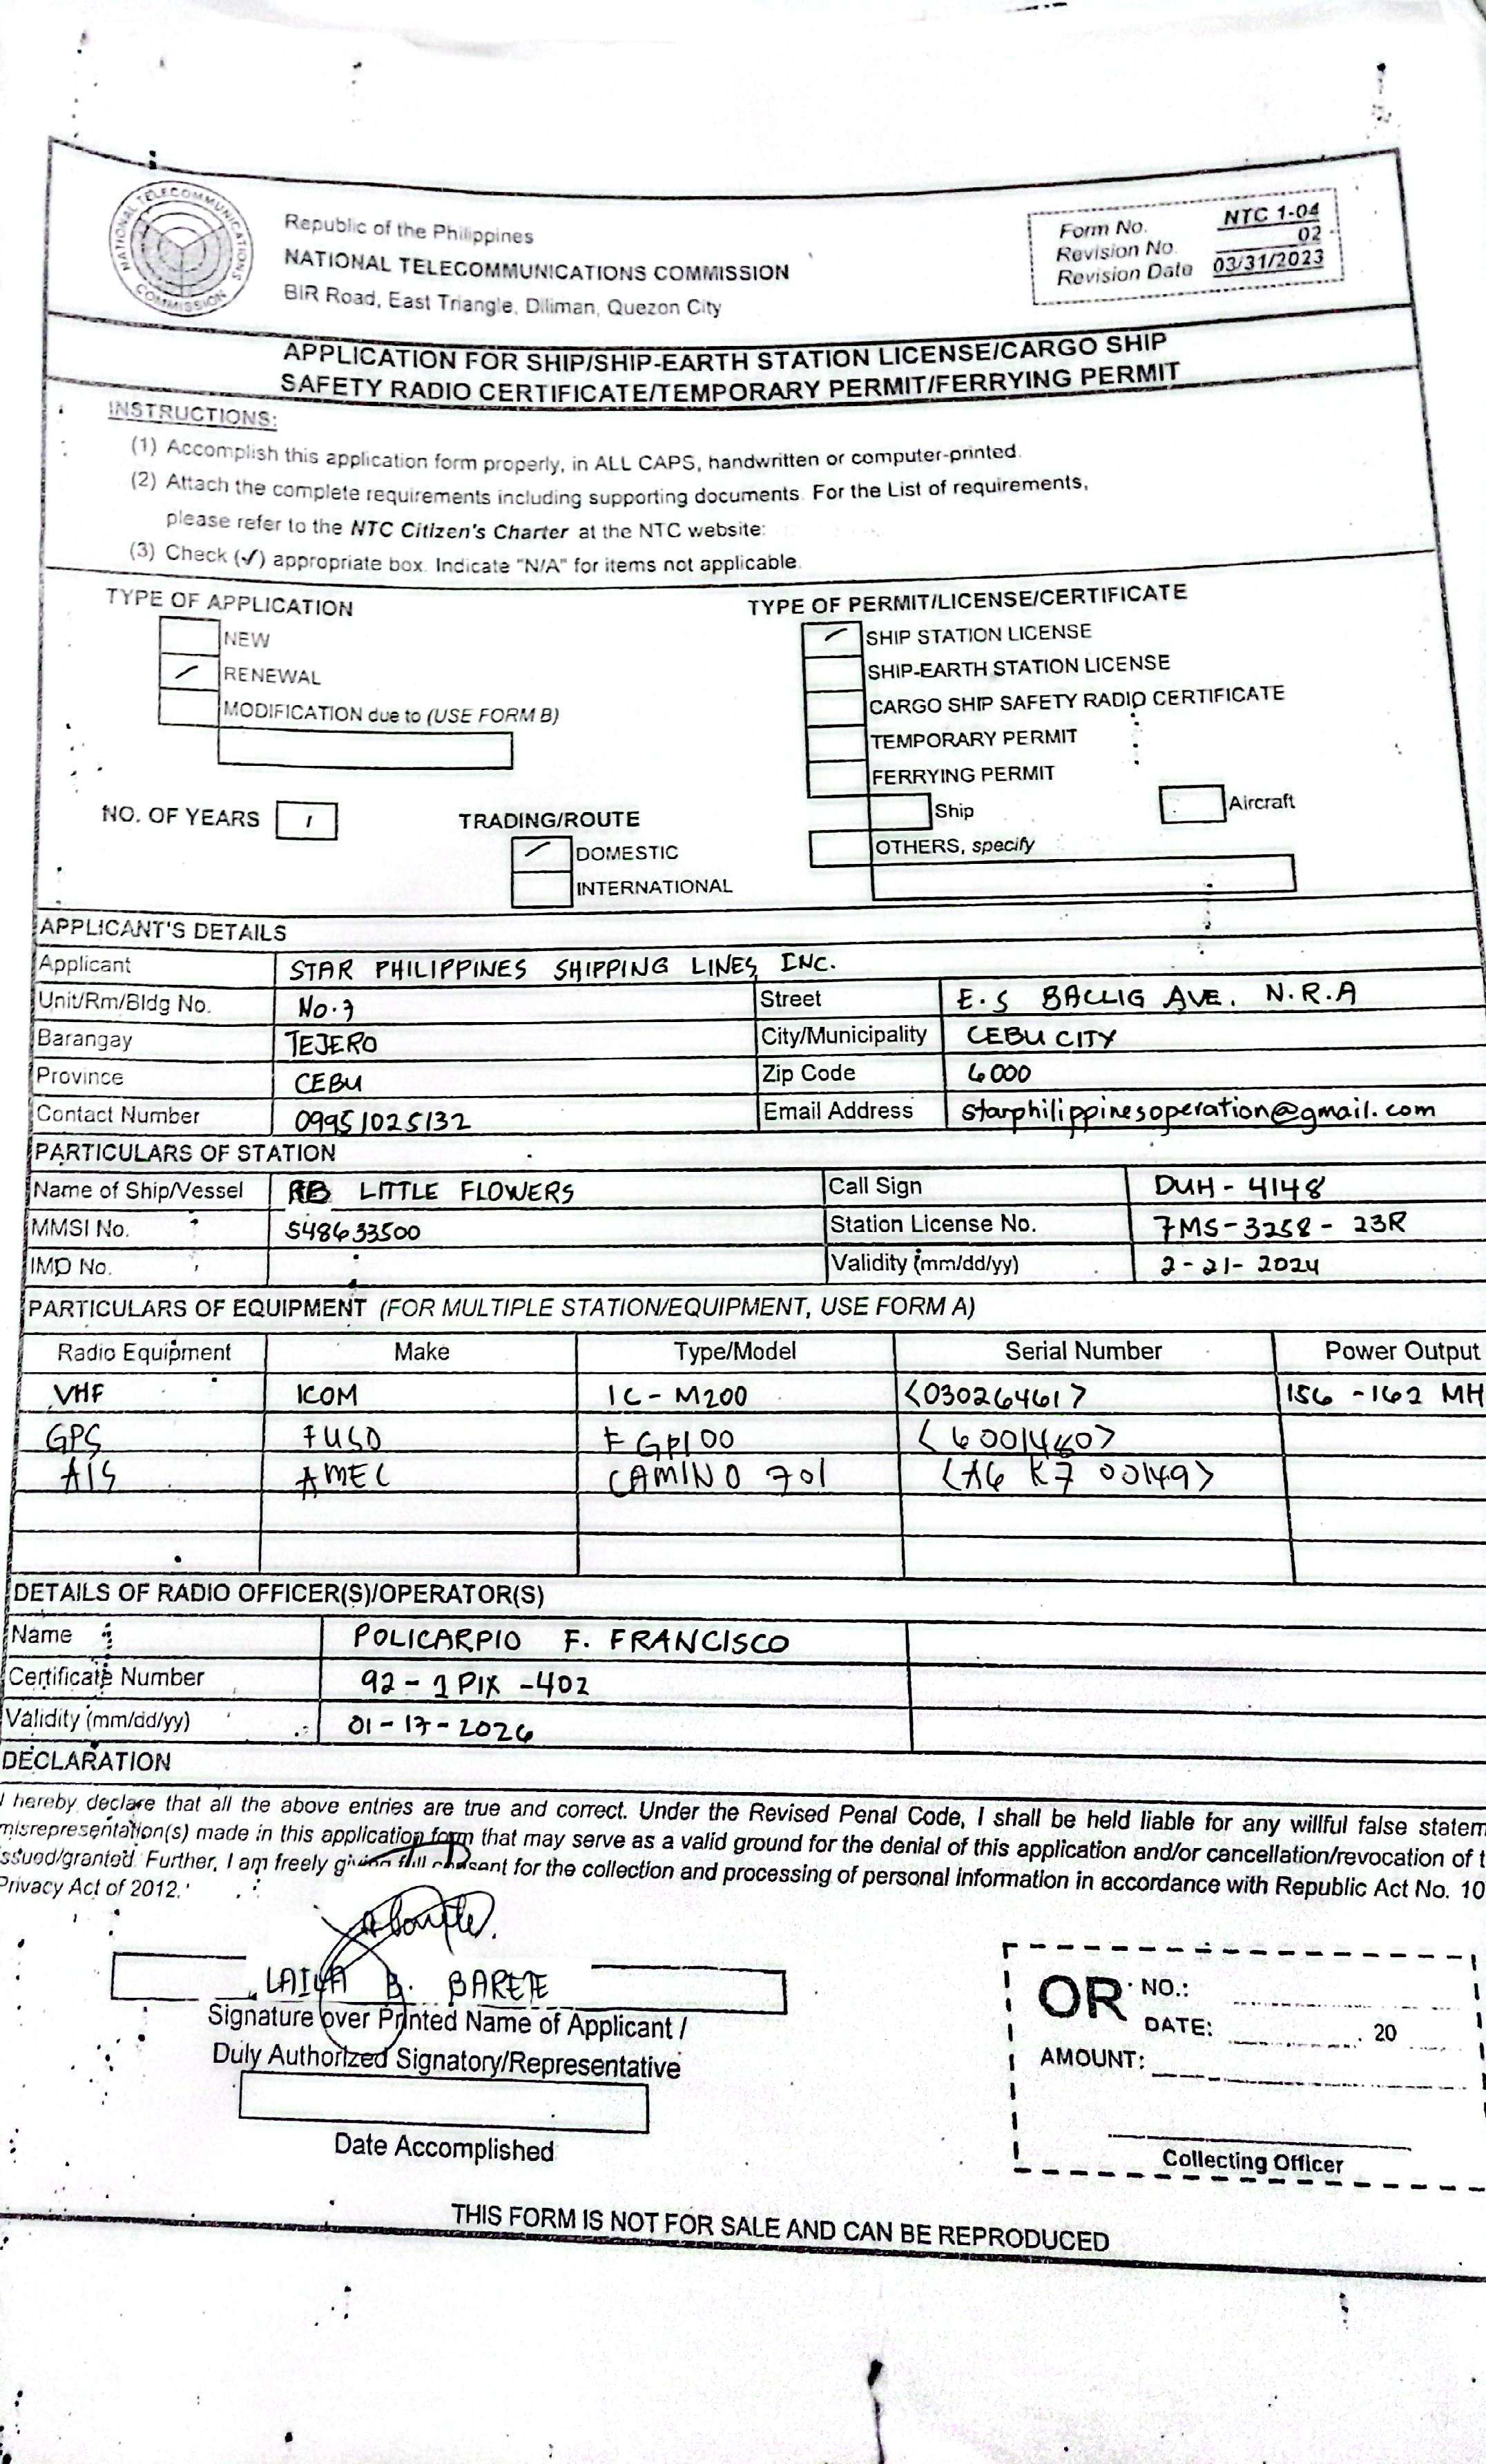 NATIONAL TELECOMMUNICATIONS COMMISSION
Republic of the Philippines
NATIONAL TELECOMMUNICATIONS COMMISSION
BIR Road, East Triangle, Diliman, Quezon City
Form No. NTC 1-04
Revision No. 02
Revision Date 03/31/2023
APPLICATION FOR SHIP/SHIP-EARTH STATION LICENSE/CARGO SHIP
SAFETY RADIO CERTIFICATE/TEMPORARY PERMIT/FERRYING PERMIT
INSTRUCTIONS:
(1) Accomplish this application form properly, in ALL CAPS, handwritten or computer-printed.
(2) Attach the complete requirements including supporting documents. For the List of requirements,
please refer to the NTC Citizen's Charter at the NTC website:
(3) Check (✓) appropriate box. Indicate "N/A" for items not applicable.
TYPE OF APPLICATION
NEW
RENEWAL
MODIFICATION due to (USE FORM B)
NO. OF YEARS 1
TRADING/ROUTE
DOMESTIC
INTERNATIONAL
TYPE OF PERMIT/LICENSE/CERTIFICATE
SHIP STATION LICENSE
SHIP-EARTH STATION LICENSE
CARGO SHIP SAFETY RADIO CERTIFICATE
TEMPORARY PERMIT
FERRYING PERMIT
Ship Aircraft
OTHERS, specify
APPLICANT'S DETAILS
Applicant STAR PHILIPPINES SHIPPING LINES, INC.
Unit/Rm/Bldg No. No. 7 Street E.S BACLIG AVE. N.R.A
Barangay TEJERO City/Municipality CEBU CITY
Province CEBU Zip Code 6000
Contact Number 09951025132 Email Address starphilippinesoperation@gmail.com
PARTICULARS OF STATION
Name of Ship/Vessel RB LITTLE FLOWERS Call Sign DUH-4148
MMSI No. 548633500 Station License No. 7MS-3258-23R
IMO No. Validity (mm/dd/yy) 2-21-2024
PARTICULARS OF EQUIPMENT (FOR MULTIPLE STATION/EQUIPMENT, USE FORM A)
Radio Equipment Make Type/Model Serial Number Power Output
VHF ICOM IC-M200 <03026461> 156-162 MH
GPS FUSO FGP100 <6001460>
AIS AMEC CAMINO 701 <A6 K7 00149>
DETAILS OF RADIO OFFICER(S)/OPERATOR(S)
Name POLICARPIO F. FRANCISCO
Certificate Number 92-1PIX-402
Validity (mm/dd/yy) 01-17-2026
DECLARATION
I hereby declare that all the above entries are true and correct. Under the Revised Penal Code, I shall be held liable for any willful false statem
misrepresentation(s) made in this application form that may serve as a valid ground for the denial of this application and/or cancellation/revocation of t
issued/granted. Further, I am freely giving full consent for the collection and processing of personal information in accordance with Republic Act No. 10
Privacy Act of 2012.
LAILA B. BARETE
Signature over Printed Name of Applicant /
Duly Authorized Signatory/Representative
Date Accomplished
OR NO.:
DATE: , 20
AMOUNT:
Collecting Officer
THIS FORM IS NOT FOR SALE AND CAN BE REPRODUCED